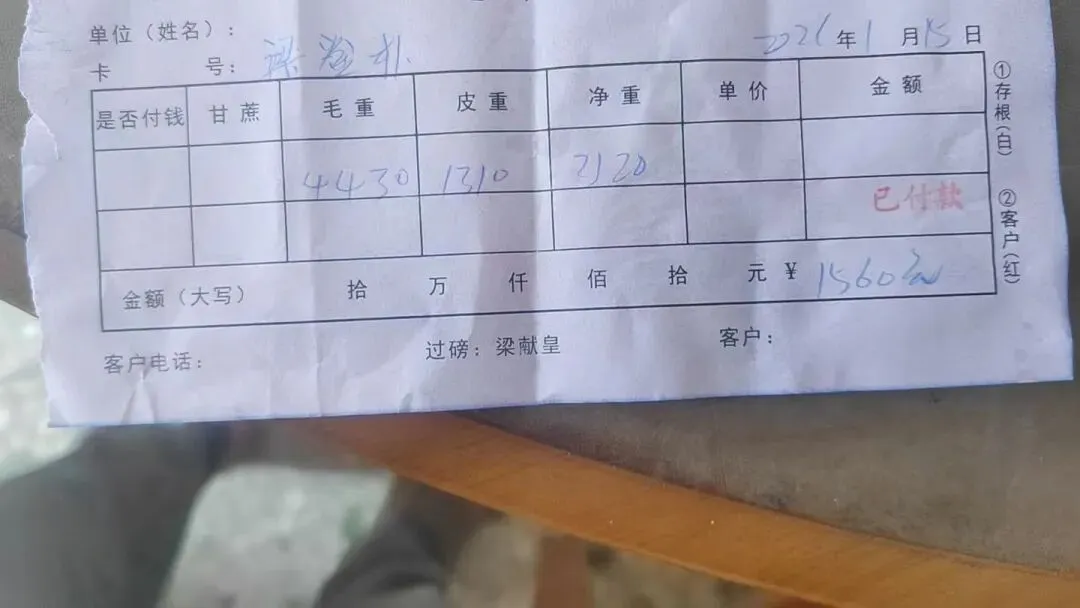 单位（姓名）：
卡 号： 梁 2026年1月15日
是否付钱 甘蔗 毛重 皮重 净重 单价 金额
4430 1310 3120
已付款
金额（大写） 拾 万 仟 佰 拾 元 ¥ 1560元
客户电话： 过磅：梁献皇 客户：
①存根（白）
②客户（红）